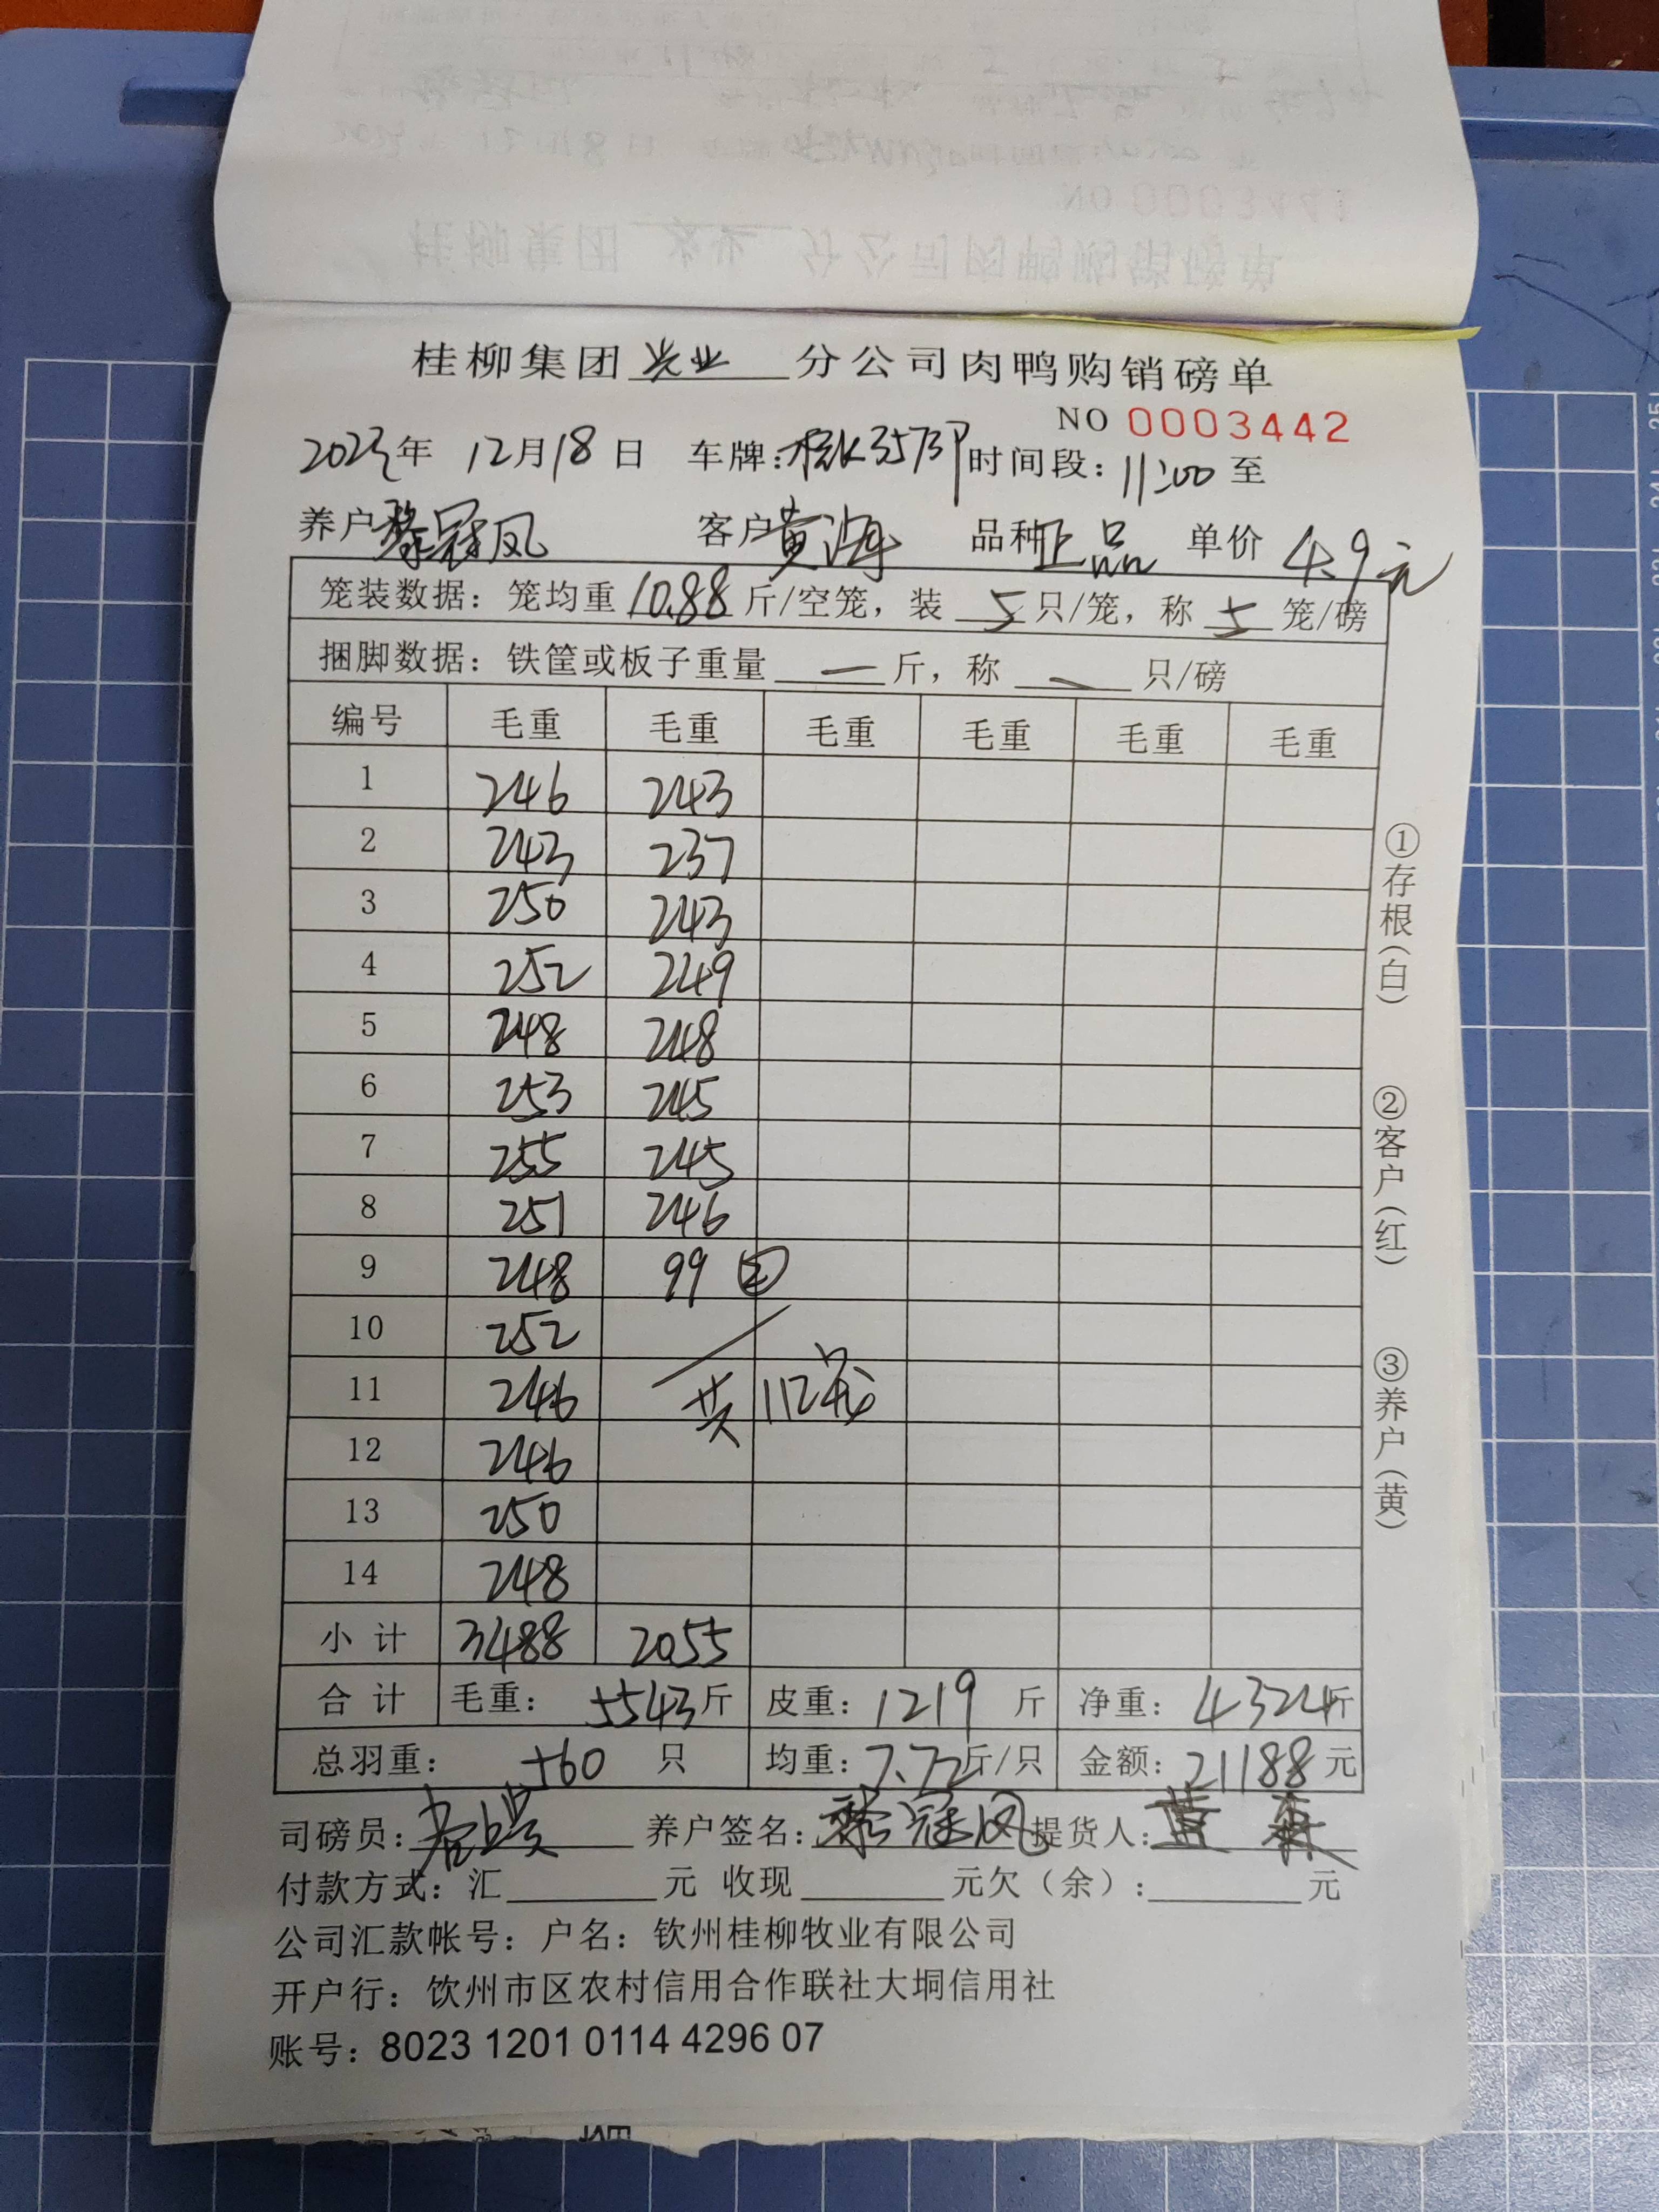 桂柳集团 兴业 分公司肉鸭购销磅单
NO 0003442
2023年 12月18日 车牌: 桂K3573P 时间段: 11:00 至
养户 黎冠凤 客户 黄海 品种 正品 单价 4.9元
笼装数据: 笼均重 10.88 斤/空笼, 装 5 只/笼, 称 5 笼/磅
捆脚数据: 铁筐或板子重量 — 斤, 称 — 只/磅
编号 毛重 毛重 毛重 毛重 毛重 毛重
1 246 243
2 243 237
3 250 243
4 252 249
5 248 248
6 253 245
7 255 245
8 251 246
9 248 99 ②
10 252
11 246 共112笼
12 246
13 250
14 248
小计 3488 2055
合计 毛重: 5543斤 皮重: 1219 斤 净重: 4324斤
总羽重: 560 只 均重: 7.72斤/只 金额: 21188元
司磅员: 养户签名: 黎冠凤 提货人:
付款方式: 汇 元 收现 元欠(余): 元
公司汇款帐号: 户名: 钦州桂柳牧业有限公司
开户行: 钦州市区农村信用合作联社大垌信用社
账号: 8023 1201 0114 4296 07
①存根(白)
②客户(红)
③养户(黄)